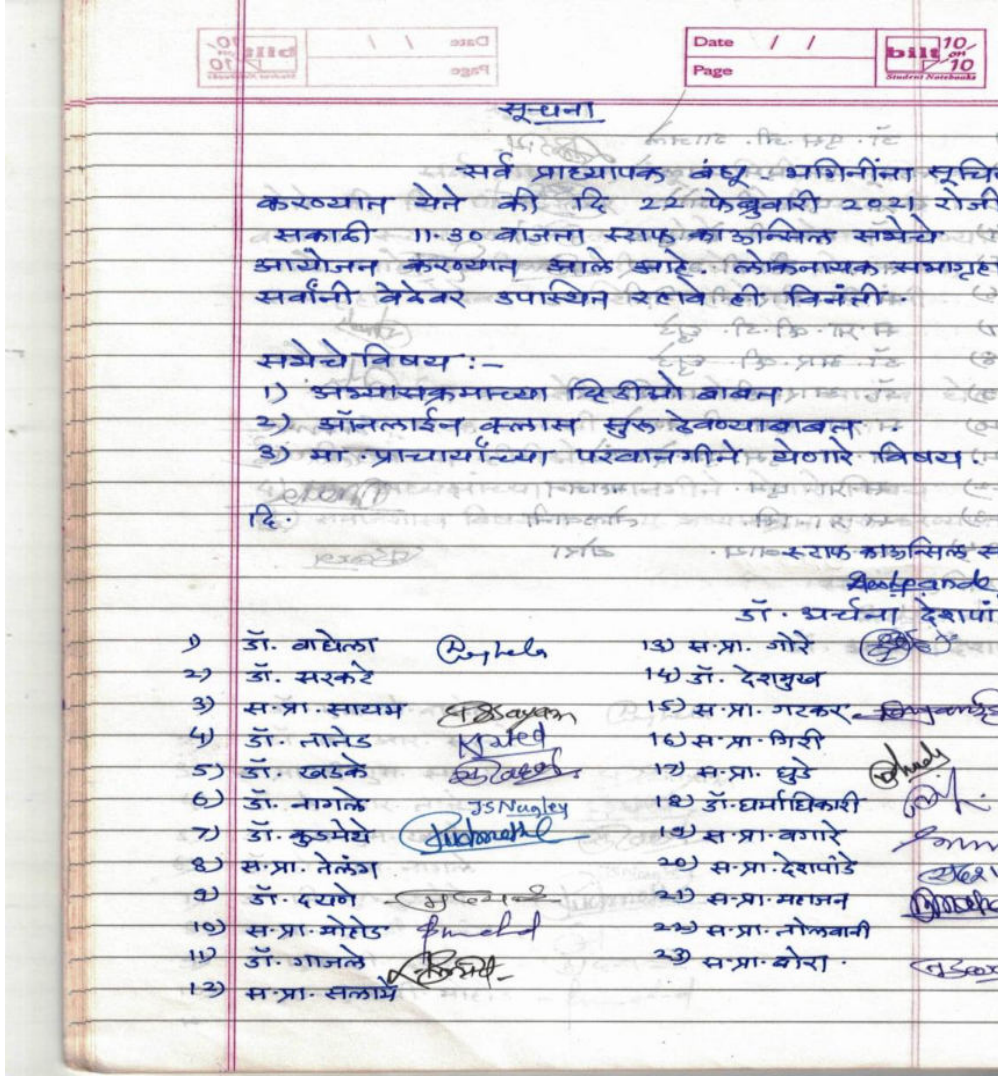 Date / /
Page
bilt 10 on 10
Student Notebooks
सूचना
सर्व प्राध्यापक बंधू भगिनींना सूचि
करण्यात येते की दि 22 फेब्रुवारी 2021 रोजी
सकाळी 11.30 वाजता स्टाफ काऊन्सिल सभेचे
आयोजन करण्यात आले आहे. लोकनायक सभागृहा
सर्वांनी वेळेवर उपास्थित रहावे ही विनंती.
सभेचे विषय :-
1) अभ्यासक्रमाच्या व्हिडीओ बाबत
2) ऑनलाईन क्लास सुरू ठेवण्याबाबत
3) मा. प्राचार्यांच्या परवानगीने येणारे विषय.
दि.
स्टाफ काऊन्सिल स
Deshpande
डॉ. अर्चना देशपां
1) डॉ. वाघेला
2) डॉ. सरकटे
3) स.प्रा. सायाम
4) डॉ. नानेड
5) डॉ. खडके
6) डॉ. नागले JSNagley
7) डॉ. कुडमेथे
8) स.प्रा. तेलंग
9) डॉ. दयणे
10) स.प्रा. मोहोड
11) डॉ. गाजले
12) स.प्रा. सलामे
13) स.प्रा. गोरे
14) डॉ. देशमुख
15) स.प्रा. गटकर
16) स.प्रा. गिरी
17) स.प्रा. घुडे
18) डॉ. धर्माधिकारी
19) स.प्रा. वगारे
20) स.प्रा. देशपांडे
21) स.प्रा. महाजन
22) स.प्रा. तोलवानी
23) स.प्रा. बोरा.